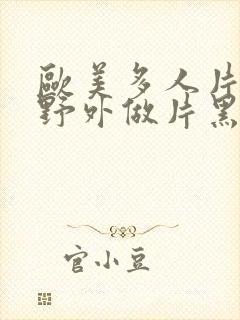 歐美多人片
野外做片黑
官小豆